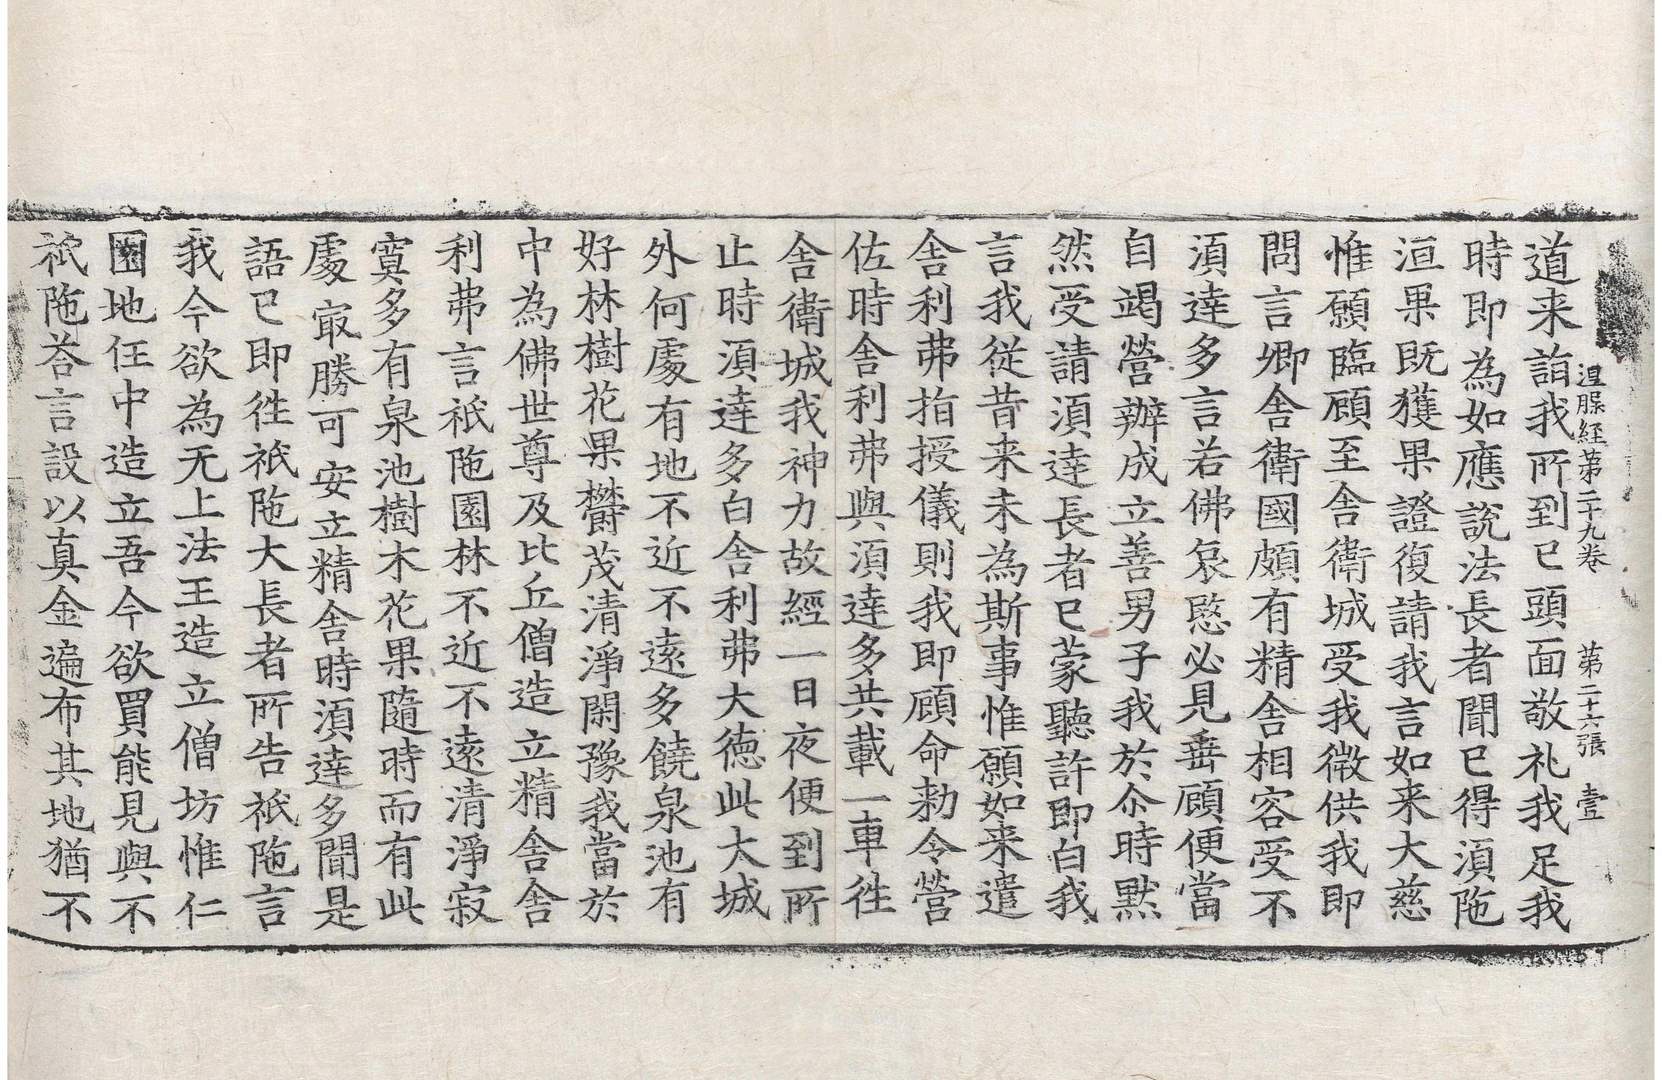 涅槃経第二十九卷 第二十六張 壹
道来詣我所到已頭面敬礼我足我
時即為如應說法長者聞已得湏陁
洹果既獲果證復請我言如来大慈
惟願臨顧至舍衛城受我微供我即
問言卿舍衛國頗有精舍相容受不
湏達多言若佛哀愍必見垂顧便當
自竭營辦成立善男子我於尒時默
然受請湏達長者已蒙聽許即白我
言我從昔来未為斯事惟願如来遣
舍利弗指授儀則我即顧命勑令營
佐時舍利弗與湏達多共載一車徃
舍衛城我神力故經一日夜便到所
止時湏達多白舍利弗大德此大城
外何處有地不近不遠多饒泉池有
好林樹花果欝茂清淨閑豫我當於
中為佛世尊及比丘僧造立精舍舍
利弗言祇陁園林不近不遠清淨寂
寞多有泉池樹木花果隨時而有此
處冣勝可安立精舍時湏達多聞是
語已即徃祇陁大長者所告祇陁言
我今欲為无上法王造立僧坊惟仁
園地任中造立吾今欲買能見與不
祇陁荅言設以真金遍布其地猶不